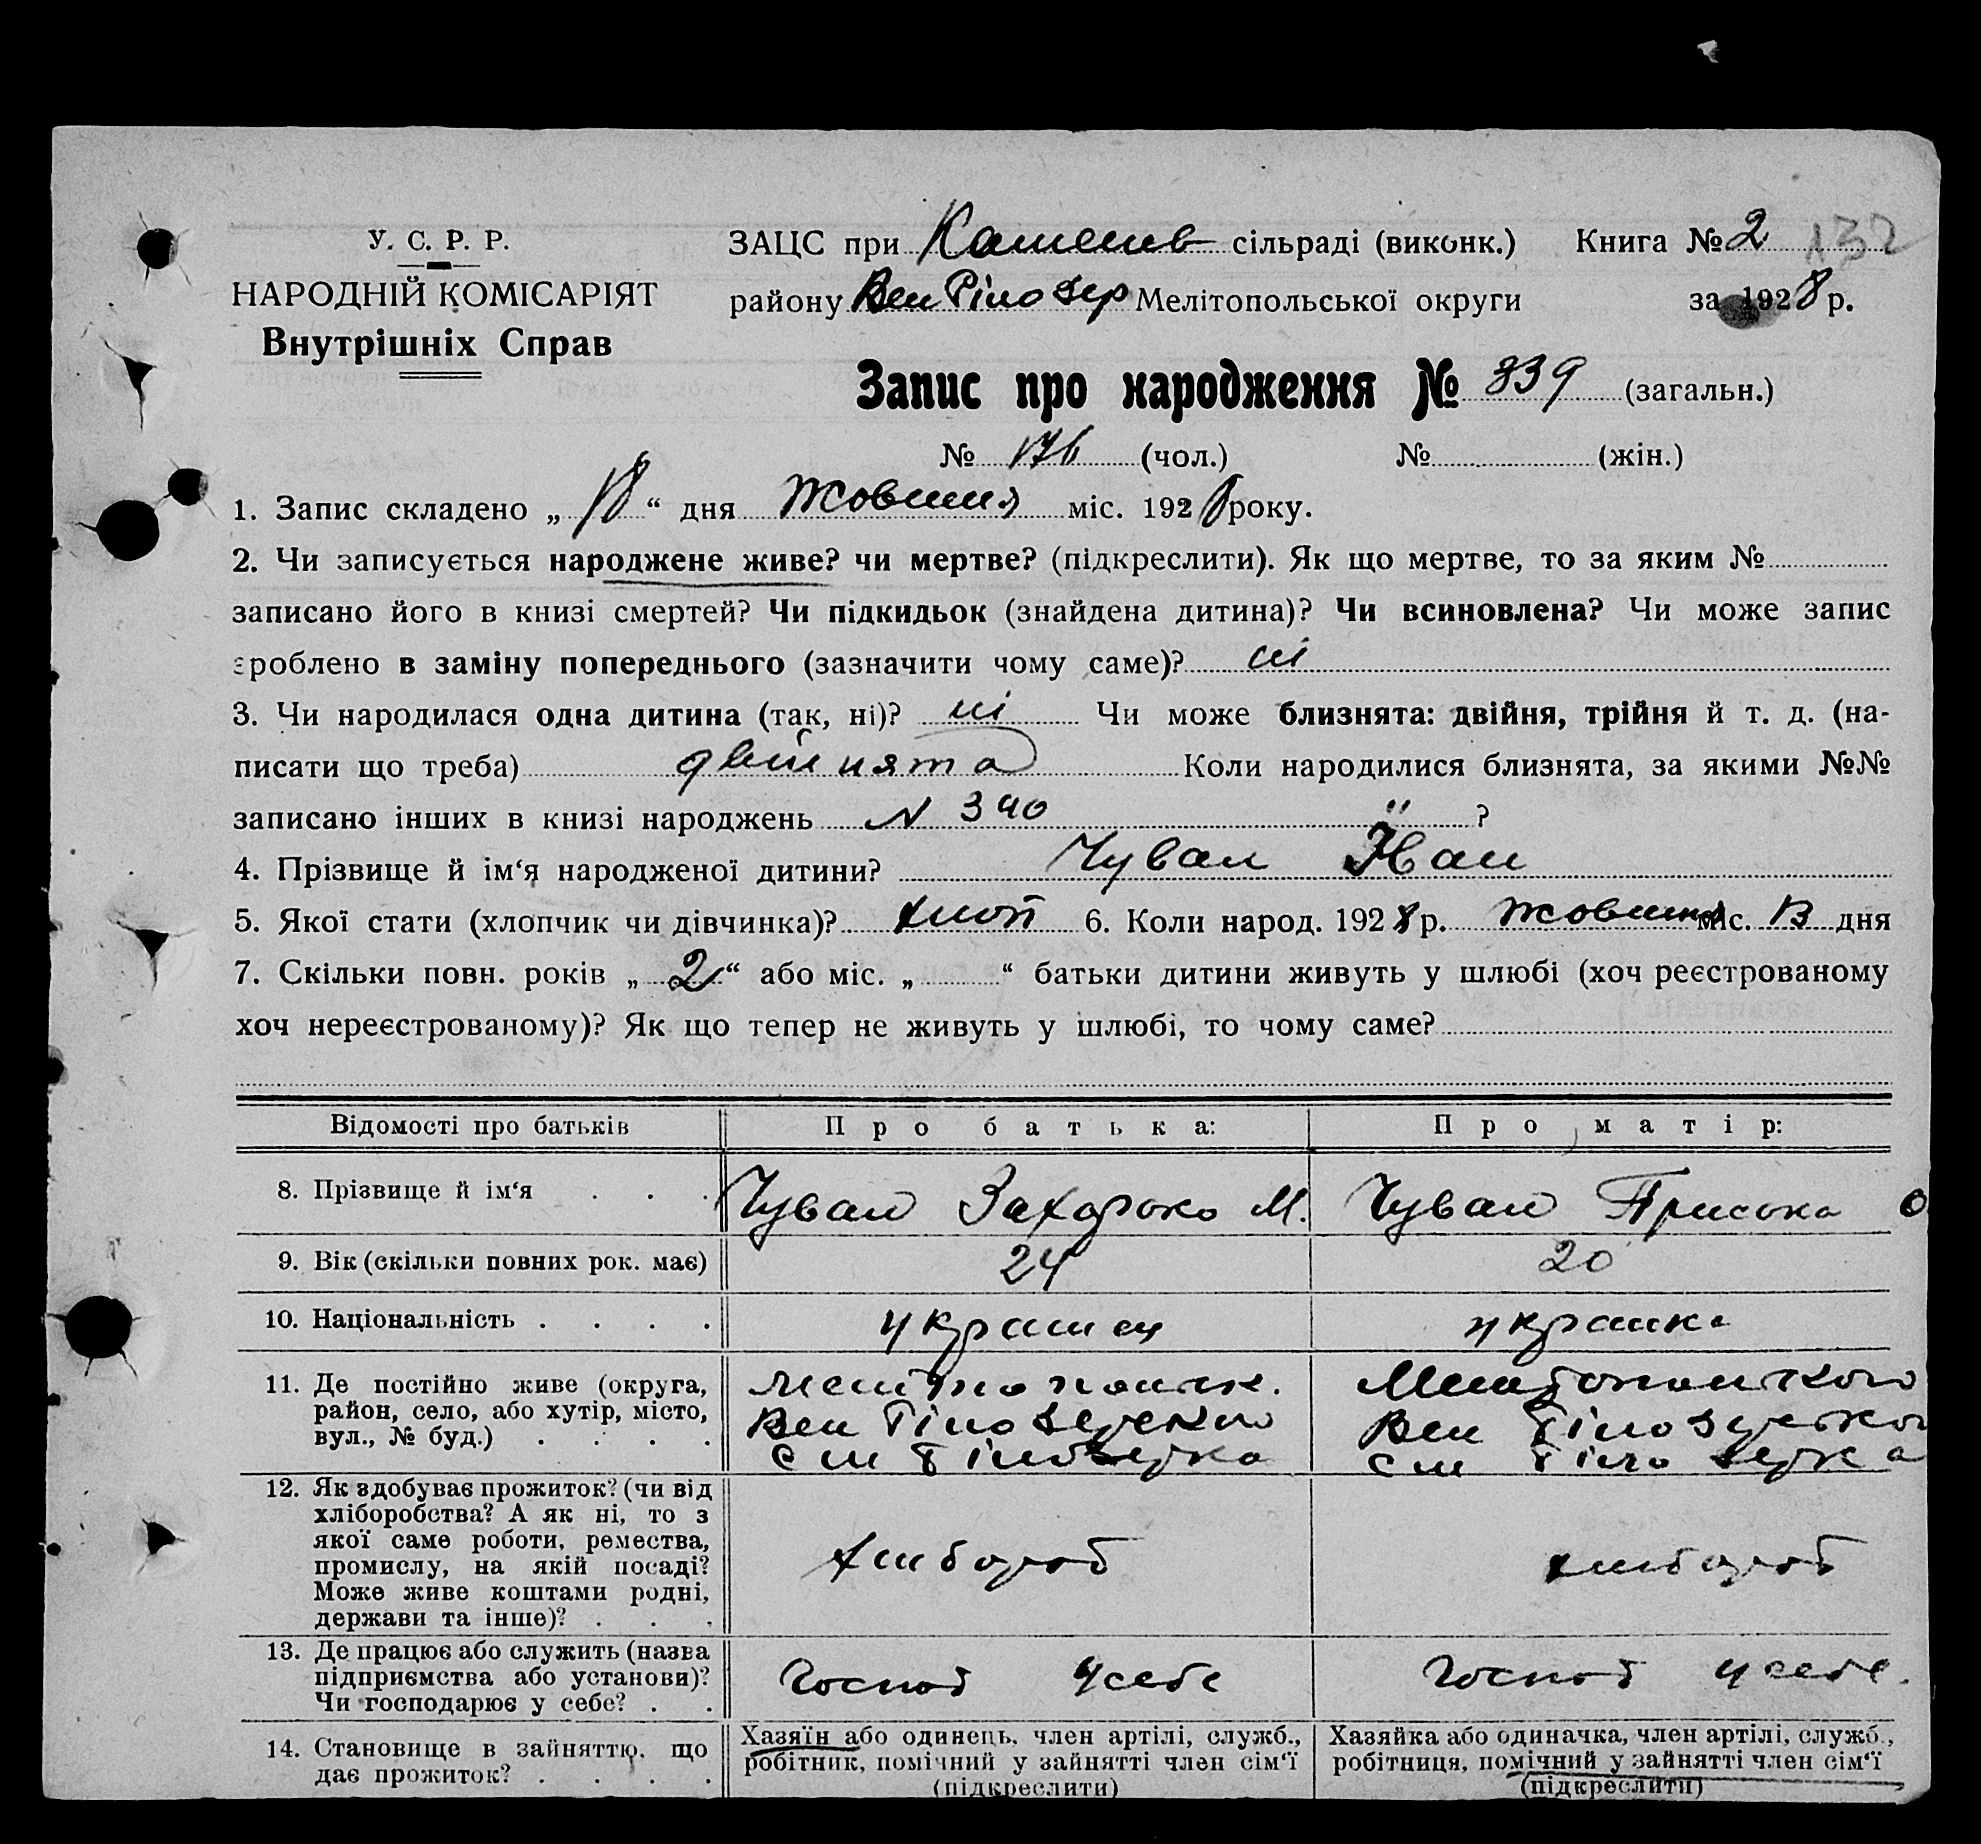 У. С. Р. Р.
НАРОДНІЙ КОМІСАРІЯТ
Внутрішніх Справ
ЗАЦС при Каменев сільраді (виконк.) Книга № 2 132
району Мелітопольської округи за 1928 р.
Запис про народження № 339 (загальн.)
№ 176 (чол.) № (жін.)
1. Запис складено „18“ дня Жовтня міс. 1928 року.
2. Чи записується народжене живе? чи мертве? (підкреслити). Як що мертве, то за яким №
записано його в книзі смертей? Чи підкидьок (знайдена дитина)? Чи всиновлена? Чи може запис
зроблено в заміну попереднього (зазначити чому саме)? ні
3. Чи народилася одна дитина (так, ні)? ні Чи може близнята: двійня, трійня й т. д. (на-
писати що треба) двійнята Коли народилися близнята, за якими №№
записано інших в книзі народжень N 340 ?
4. Прізвище й ім‘я народженої дитини? Чувал Іван
5. Якої стати (хлопчик чи дівчинка)? хлоп 6. Коли народ. 1928 р. Жовтня міс. 13 дня
7. Скільки повн. років „2“ або міс. „ “ батьки дитини живуть у шлюбі (хоч реєстрованому
хоч нереєстрованому)? Як що тепер не живуть у шлюбі, то чому саме?
Відомості про батьків Про батька: Про матір:
8. Прізвище й ім‘я . . . Чувал Захарко М. Чувал Приська О
9. Вік (скільки повних рок. має) 24 20
10. Національність . . . . украинец украинка
11. Де постійно живе (округа,
район, село, або хутір, місто,
вул., № буд.) . . . .
Вел Білозерского
сел Білозерка
Вел Білозерского
сел Білозерка
12. Як здобуває прожиток? (чи від
хліборобства? А як ні, то з
якої саме роботи, ремества,
промислу, на якій посаді?
Може живе коштами родні,
держави та інше)? . . .
хлібороб хлібороб
13. Де працює або служить (назва
підприємства або установи)?
Чи господарює у себе? . .
Господ у себе Господ у себе.
14. Становище в зайняттю, що
дає прожиток? . . . .
Хазяїн або одинець, член артілі, служб.,
робітник, помічний у зайнятті член сім‘ї
(підкреслити)
Хазяйка або одиначка, член артілі, служб.,
робітниця, помічний у зайнятті член сім‘ї
(підкреслити)